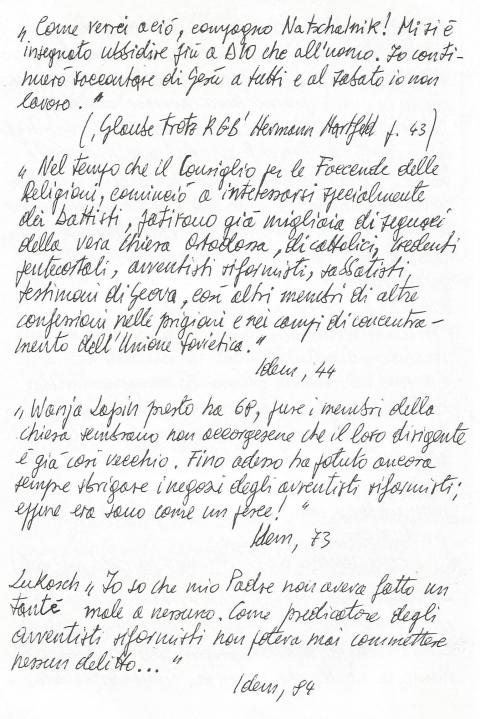 „ Come verrei a ció, compagno Natschalnik! Mi si é
insegnato ubbidire più a DIO che all'uomo. Io conti-
nueró raccontare di Gesú a tutti e al sabato io non
lavoro. "
(„Glaube trotz KGB' Hermann Hartfeld p. 43)
„ Nel tempo che il Consiglio per le Faccende delle
Religioni, cominció a interessarsi specialmente
dei Battisti, patirono giá migliaia di seguaci
della vera Chiesa Ortodossa, di cattolici, credenti
pentecostali, avventisti riformisti, sabbatisti,
testimoni di Geova, cosí altri membri di altre
confessioni nelle prigioni e nei campi di concentra-
mento dell'Unione Sovietica."
Idem, 44
„ Wanja Lapin presto ha 68, pure i membri della
chiesa sembrano non accorgesene che il loro dirigente
é giá cosí vecchio. Fino adesso ha potuto ancora
sempre sbrigare i negozi degli avventisti riformisti;
eppure era sano come un pesce! "
Idem, 73
Lukosch „ Io so che mio Padre non aveva fatto un
tanté male a nessuno. Come predicatore degli
avventisti riformisti non poteva mai commettere
nessun delitto... "
Idem, 84